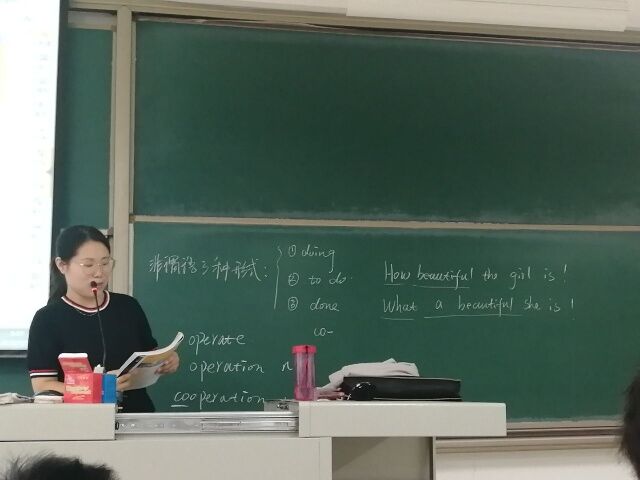 非谓语3种形式:
① doing
② to do
③ done
co-
How beautiful the girl is!
What a beautiful she is!
operate
operation n
cooperation